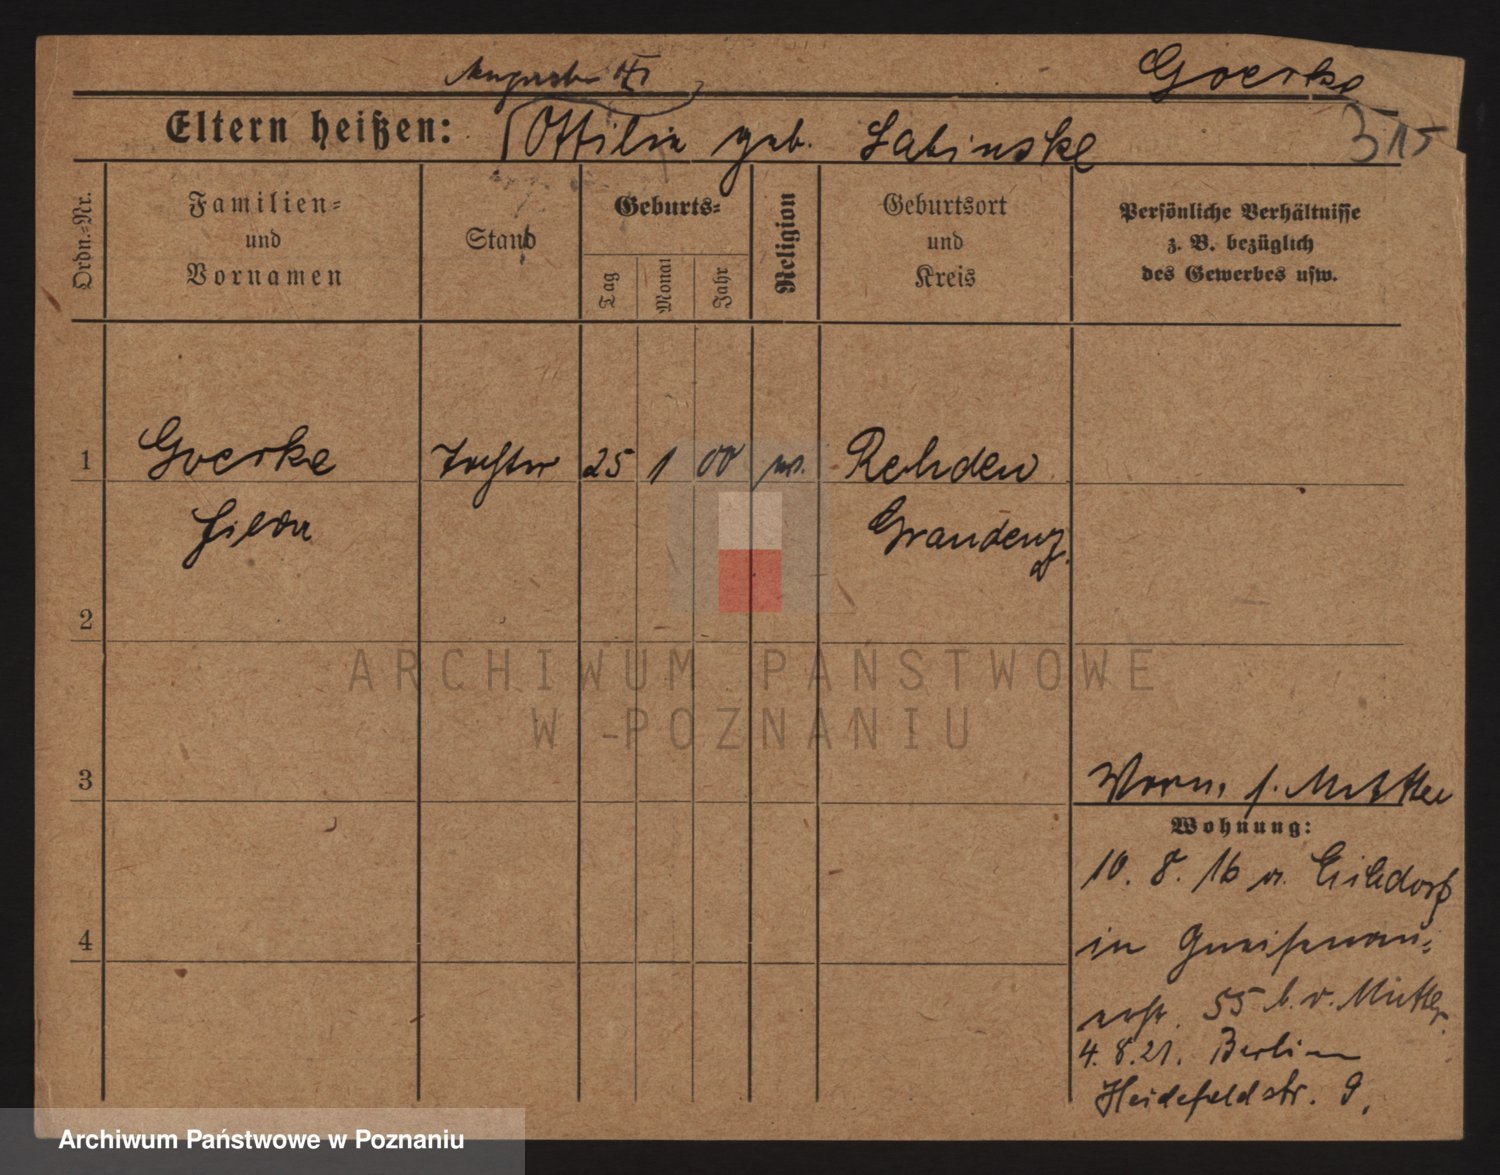 Goerke
Eltern heißen: Ottilie geb. Labinske
315
Ordn.-Nr.
Familien-
und
Vornamen
Stand
Geburts-
Tag
Monat
Jahr
Religion
Geburtsort
und
Kreis
Persönliche Verhältnisse
z. B. bezüglich
des Gewerbes usw.
1 Goerke Tochter 25 1 00 Rehden
Hilda Graudenz.
2
ARCHIWUM PAŃSTWOWE
W POZNANIU
3
Vorm. s. Mutter
Wohnung:
10. 8. 16 a. Eichdorf
4
in Gneisenau-
55 b. d. Mutter.
4. 8. 21. Berlin
Heidefeldstr. 9.
Archiwum Państwowe w Poznaniu